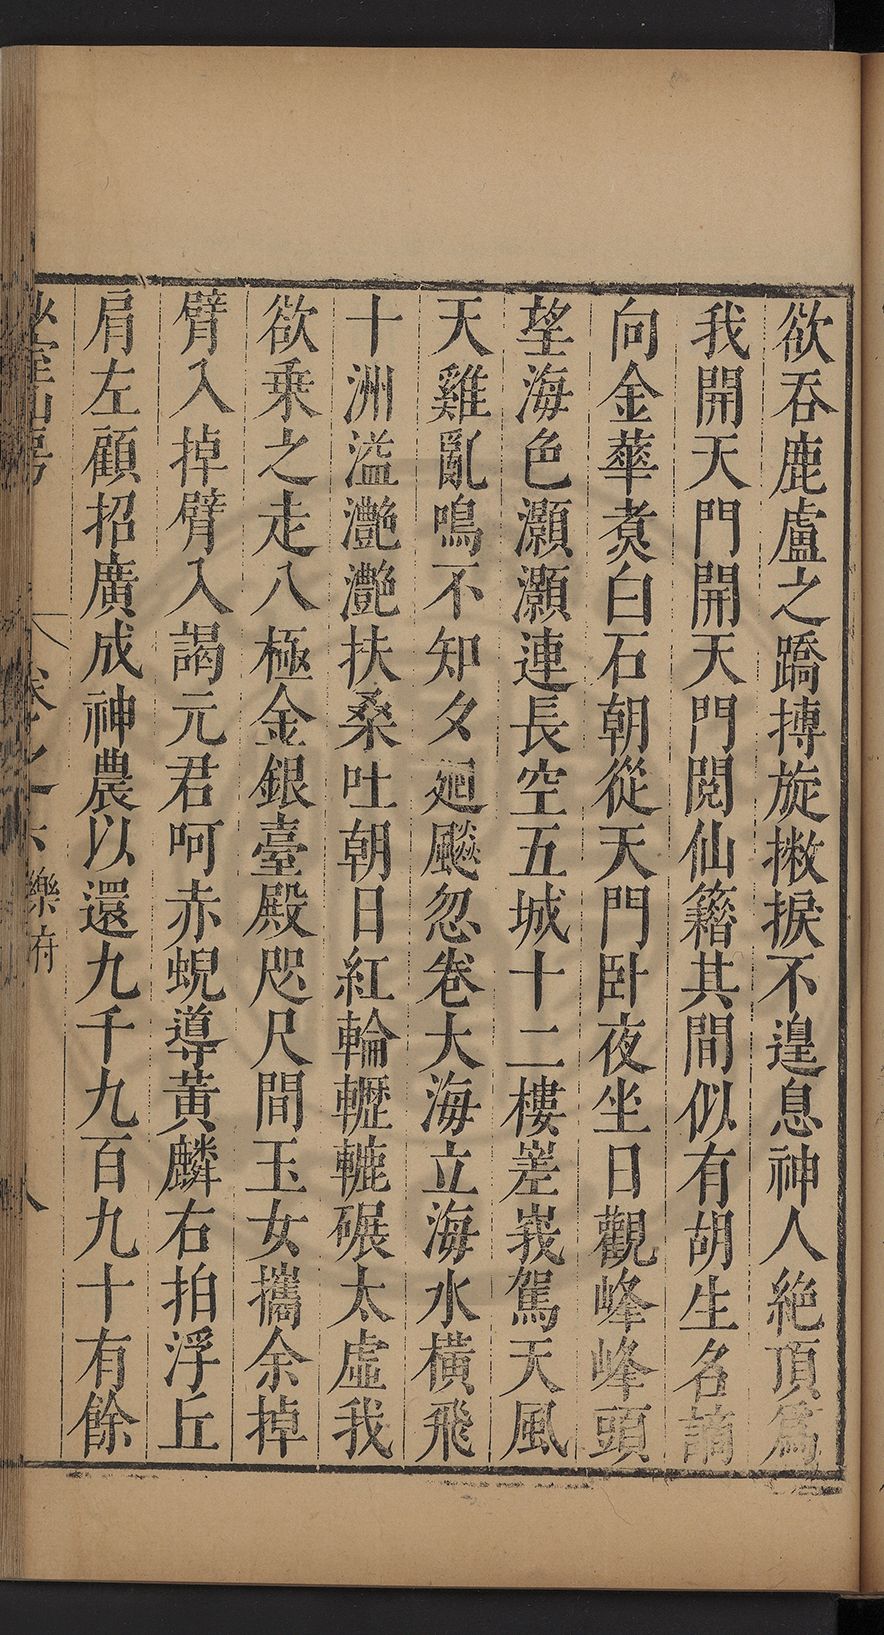 欲吞鹿盧之蹻摶旋撇捩不遑息神人絶頂爲
我開天門開天門閱仙籍其間似有胡生名謫
向金華煑白石朝從天門卧夜坐日觀峰峰頭
望海色灝灝連長空五城十二樓嵳峩駕天風
天雞亂鳴不知夕廻飈忽卷大海立海水橫飛
十洲溢灔灔扶桑吐朝日紅輪轣轆碾太虛我
欲乘之走八極金銀臺殿咫尺間玉女攜余掉
臂入掉臂入謁元君呵赤蜺導黃麟右拍浮丘
肩左顧招廣成神農以還九千九百九十有餘
室山房 卷之六 樂府 八